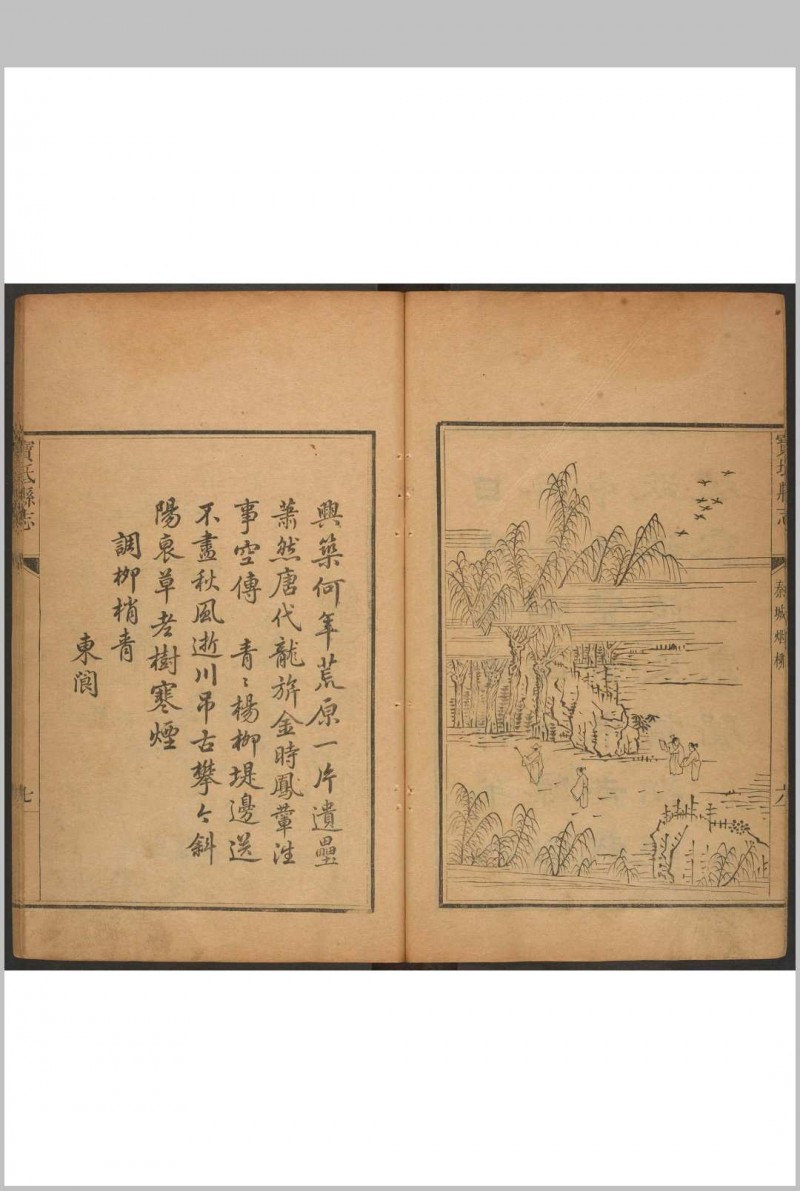 寶坻縣志
秦城烟柳
六
興築何年荒原一片遺壘
蕭然唐代龍旂金時鳳輦往
事空傳　青〻楊柳堤邊送
不盡秋風逝川弔古攀今斜
陽衰草老樹寒煙
調柳梢青
東閬
寶坻縣志
七